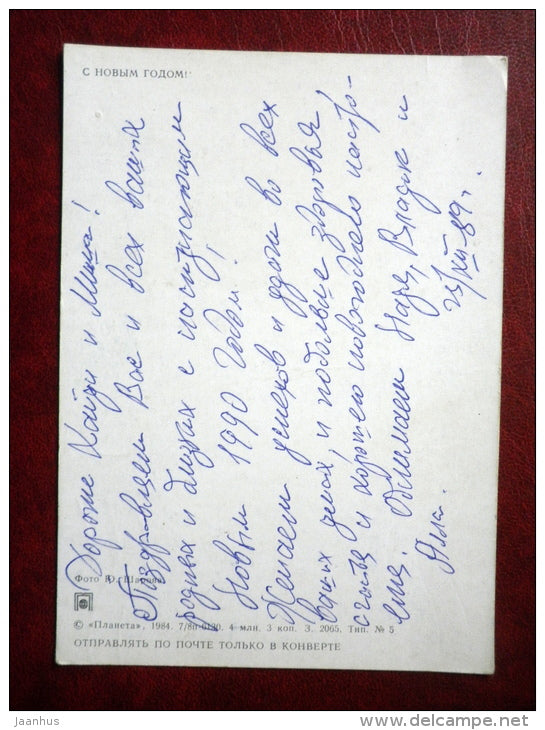 С НОВЫМ ГОДОМ!
Дорогие Хайди и Миша!
Поздравляем Вас и всех ваших
родных и близких с наступающим
Новым 1990 годом!
Желаем успехов и удачи во всех
ваших делах, и побольше здоровья,
счастья и хорошего новогоднего настро-
ения. Обнимаем Надя, Владик и
Алла. 23/XII-89 г.
Фото Ю. Шарова
© «Планета», 1984. 7/8п-6130. 4 млн. 3 коп. З. 2065. Тип. № 5
ОТПРАВЛЯТЬ ПО ПОЧТЕ ТОЛЬКО В КОНВЕРТЕ
jaanhus
www.delcampe.net